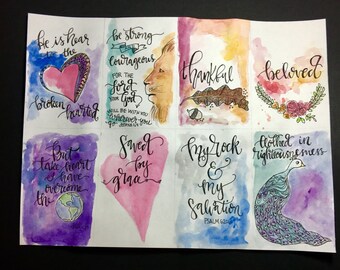 he is near
to the
broken hearted
be strong
&
courageous
FOR THE
Lord
your God
WILL BE WITH YOU
wherever you
thankful
beloved
But
take heart
I have
overcome
the
Saved
by
grace
my rock
&
my
salvation
PSALM 62
clothed in
righteousness